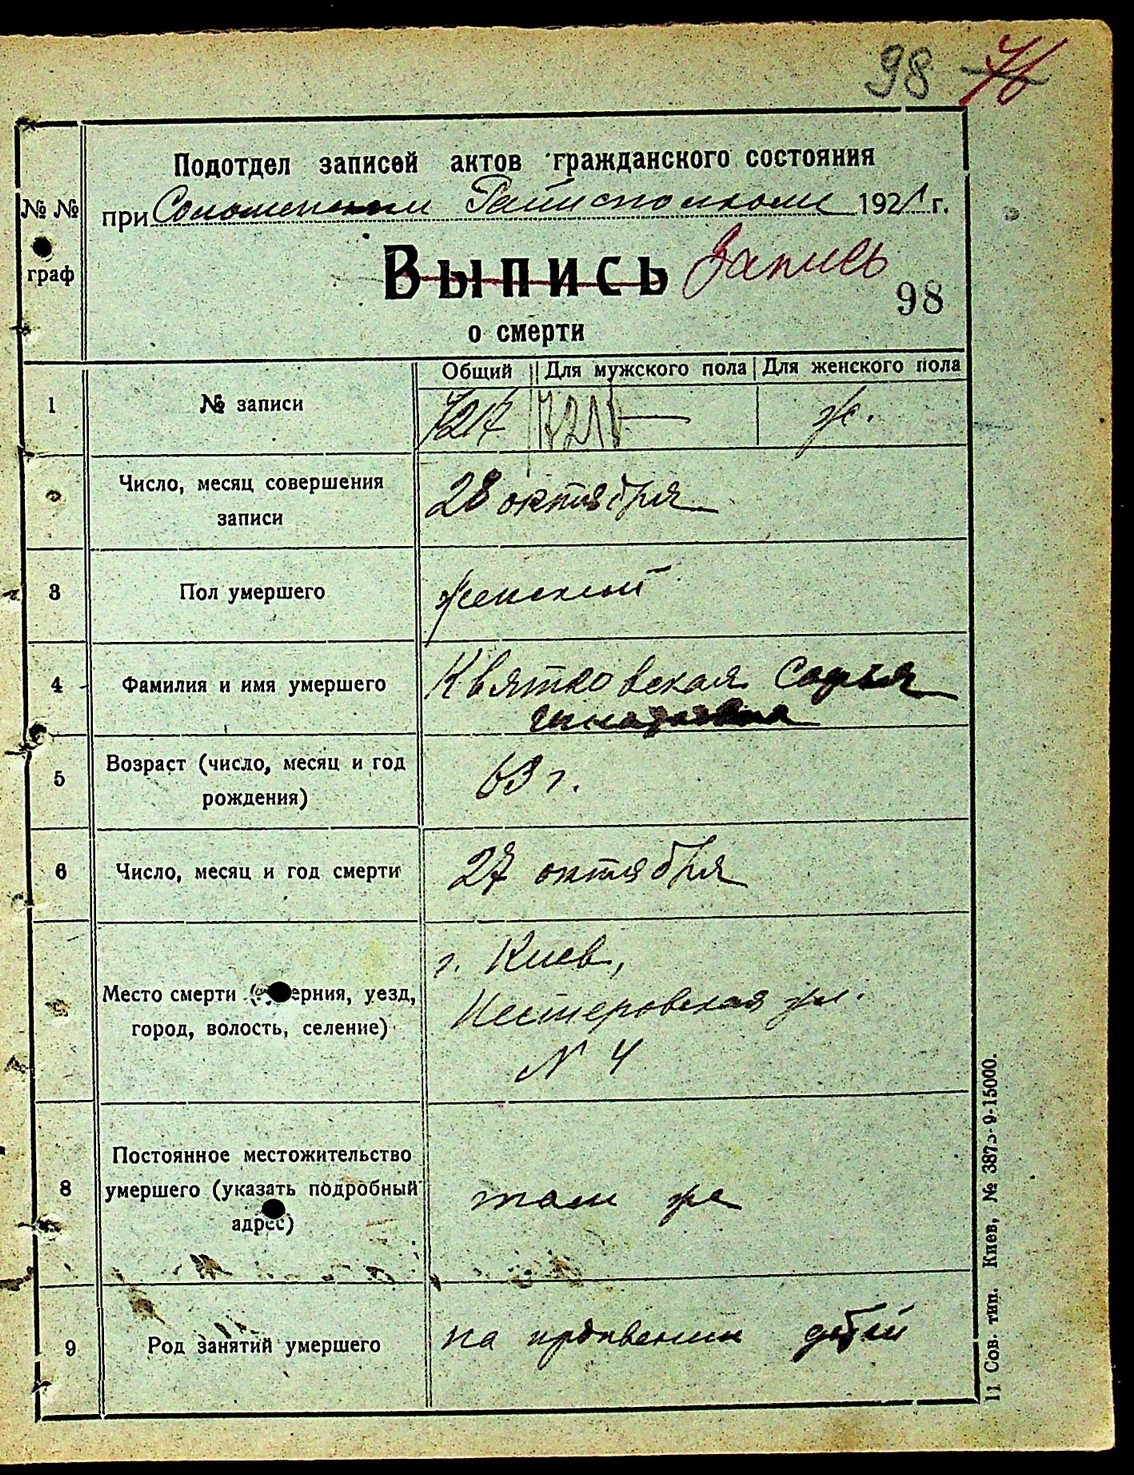 98 76
Подотдел записей актов гражданского состояния
№ №
граф
при Соломенском Райисполкоме 1921 г.
Выпись Запись
98
о смерти
Общий Для мужского пола Для женского пола
1 № записи 7217 ж.
Число, месяц совершения
записи
28 октября
3 Пол умершего женский
4 Фамилия и имя умершего Квятковская Софья
5 Возраст (число, месяц и год
рождения)
63 г.
6 Число, месяц и год смерти 27 октября
г. Киев,
Место смерти ерния, уезд,
город, волость, селение)
Нестеровская ул.
N 4
Постоянное местожительство
8 умершего (указать подробный
адрес)
там же
9 Род занятий умершего на иждивении детей
11 Сов. тип. Киев, 9-15000.